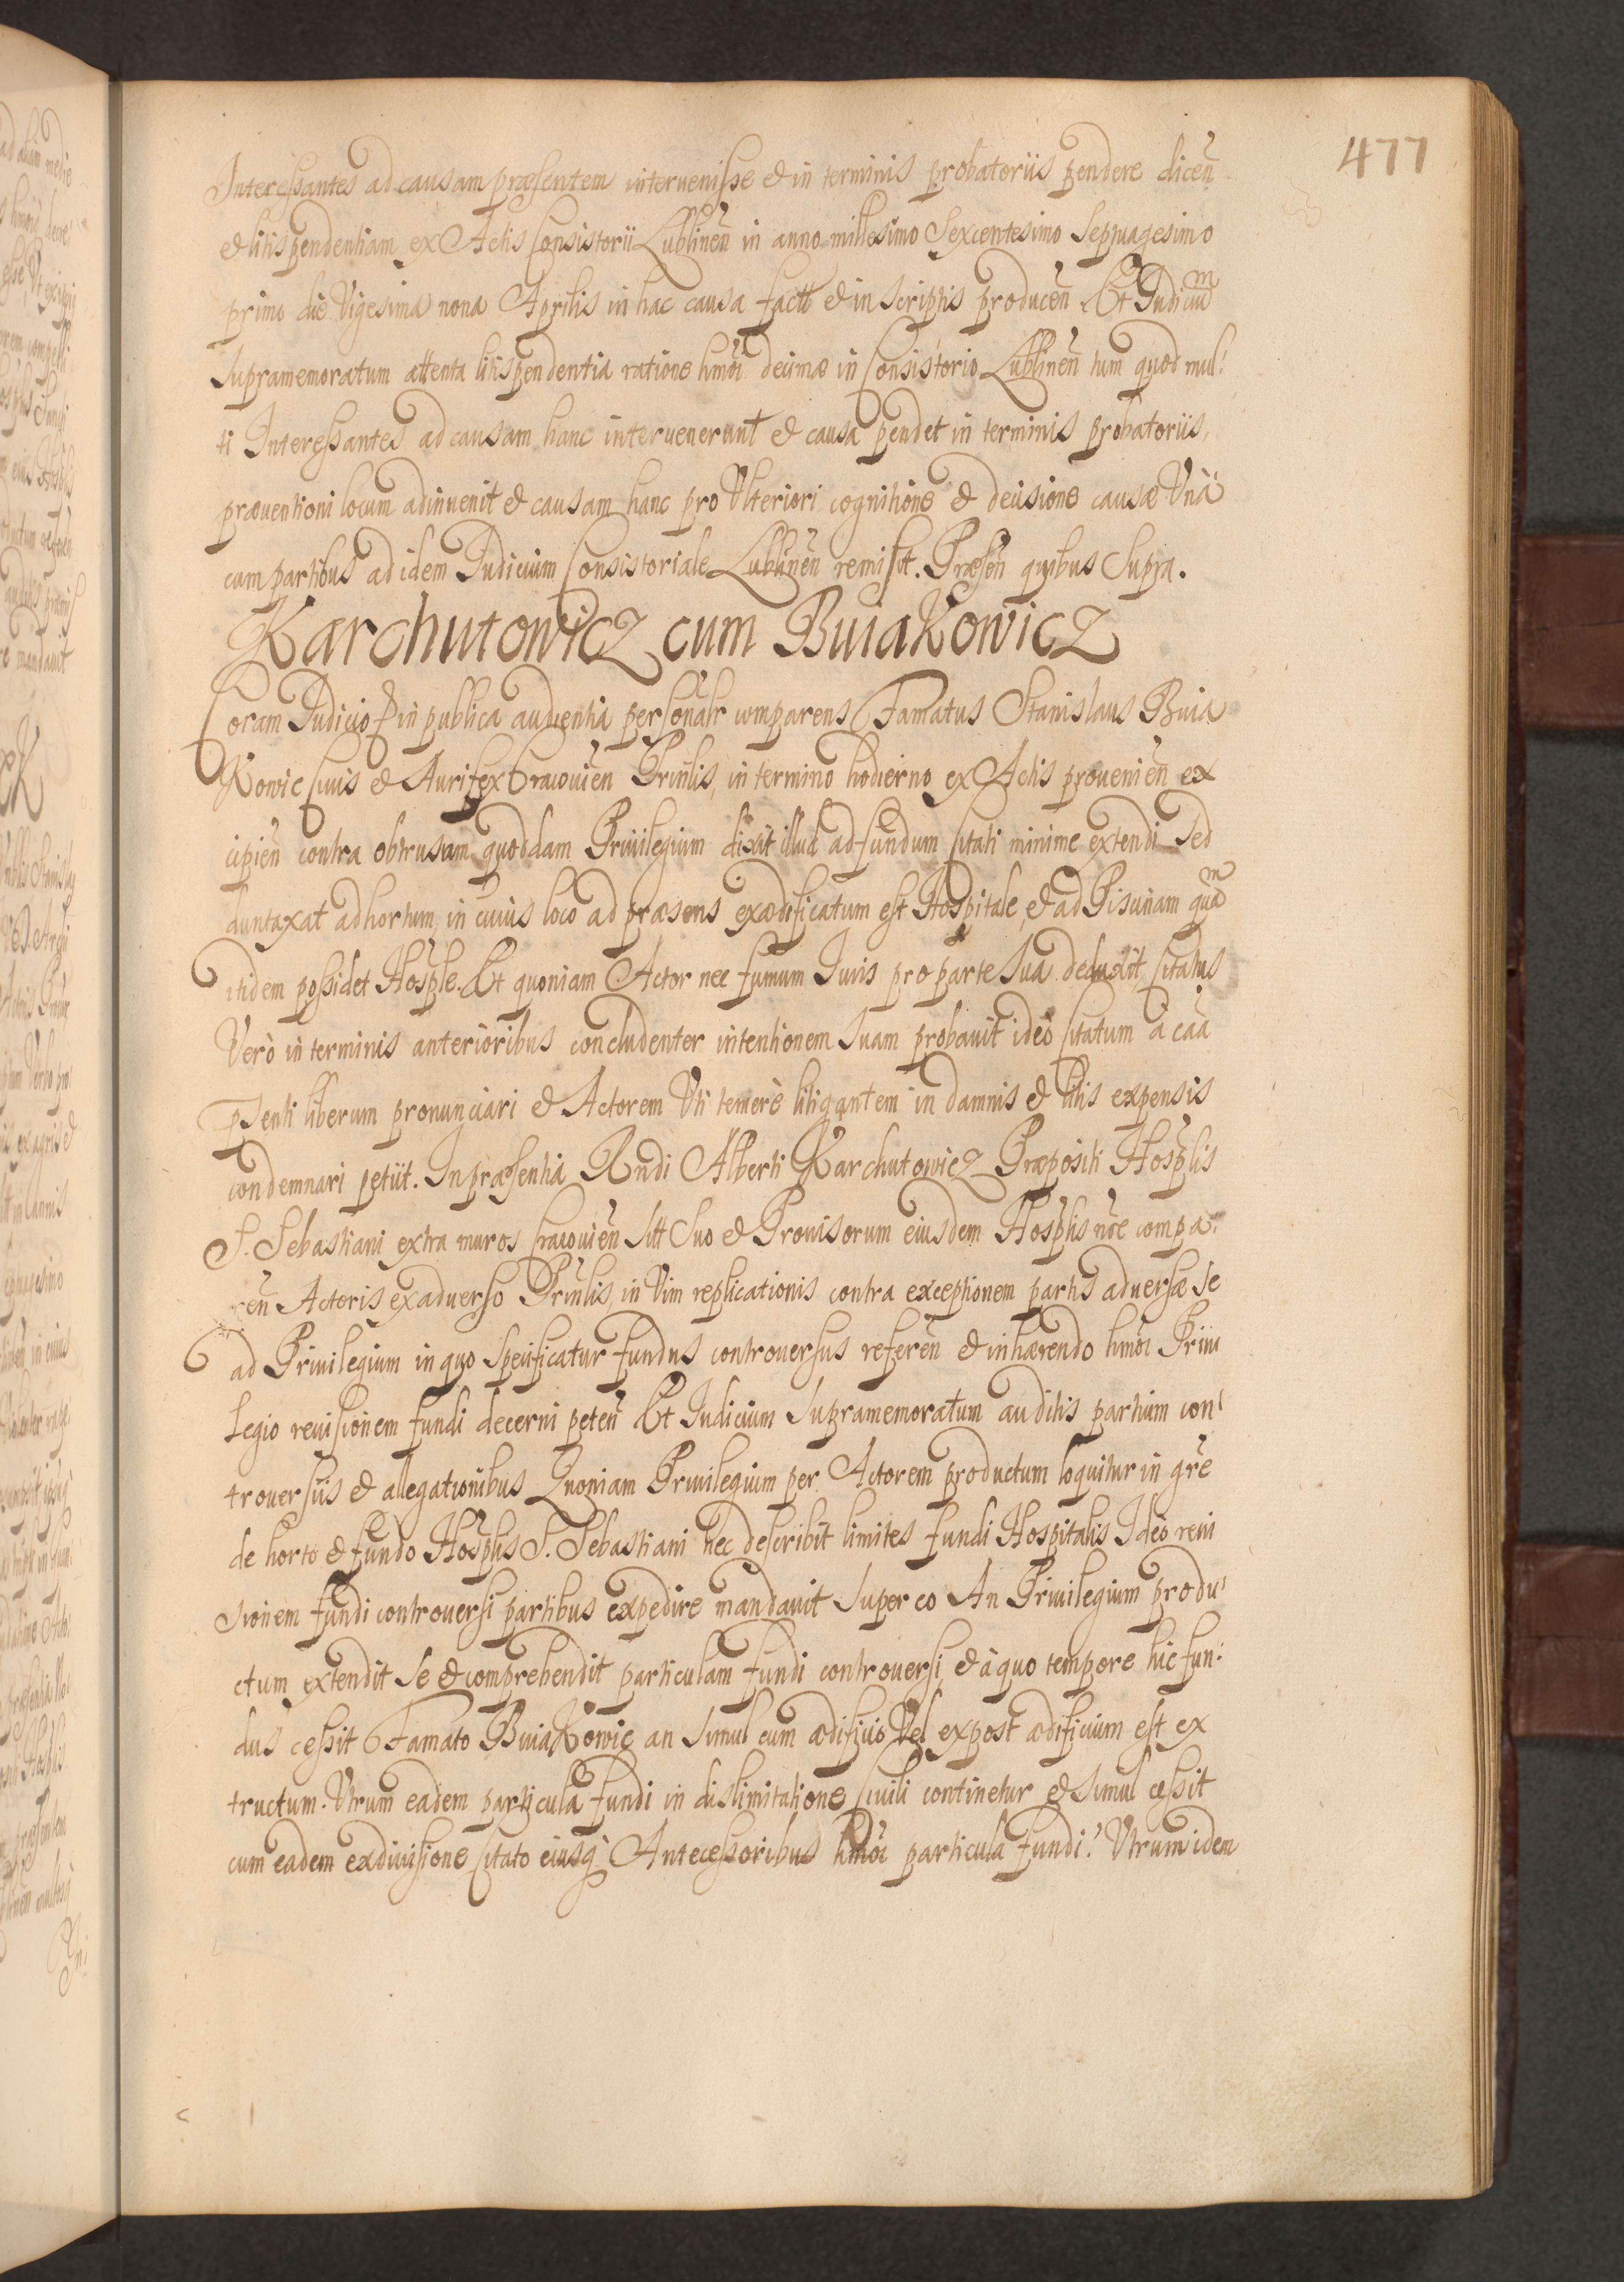 477
Interessantes ad causam præsentem intervenisse et in terminis probatoriis pendere dicen̄
et litispendentiam ex Actis Consistorii Lublinen̄ in anno millesimo Sexcentesimo Septuagesimo
primo die Vigesima nona Aprilis in hac causa factt et in scriptis producen̄ Et Iudicium
Supramemoratum attenta litispendentia ratione hmōi decimæ in Consistorio Lublinen̄ tum quod mul:
ti Interessantes ad causam hanc intervenerunt et causa pendet in terminis probatoriis,
præventioni locum adinvenit et causam hanc pro Ulteriori cognitione et decisione causæ Unà
cum partibus ad idem Iudicium Consistoriale Lublinen̄ remisit. Præsen̄ quibus Supra.
Karchutowicz cum Buiakowicz
Coram Iudicio et in publica audientia personalr comparens Famatus Stanislaus Buia
Kowic Civis et Aurifex Cracovien̄ Prin̄lis, in termino hodierno ex Actis provenien̄ ex
cipien̄ contra obtrusum quoddam Privilegium dixit illud ad fundum Citati minime extendi Sed
duntaxat ad hortum, in cuius loco ad præsens exædificatum est Hospitale, et ad Piscinam quam
itidem possidet Hosple. Et quoniam Actor nec fumum Iuris pro parte Sua deduxit, Citatus
Verò in terminis anterioribus concludenter intentionem Suam probavit ideò Citatum à caā
pSenti liberum pronunciari et Actorem Uti temerè litigantem in damnis et litis expensis
condemnari petiit. In præsentia Rndi Alberti Karchutowicz Præpositi Hosplis
S. Sebastiani extra muros Cracovien̄ Sitt Suo et Provisorum eiusdem Hosplis nōe compa:
ren̄ Actoris ex adverso Prin̄lis, in Vim replicationis contra exceptionem partis adversæ Se
ad Privilegium in quo Specificatur fundus controversus referen̄ et inhærendo hmōi Privi
legio revisionem fundi decerni peten̄ Et Iudicium Supramemoratum auditis partium con:
troversiis et allegationibus Quoniam Privilegium per Actorem productum loquitur in gn̄re
de horto et fundo Hosplis S. Sebastiani nec describit limites fundi Hospitalis Ideò revi
sionem fundi controversi partibus expedire mandavit Super eo An Privilegium produ:
ctum extendit Se et comprehendit particulam fundi controversi, et à quo tempore hic fun:
dus cessit Famato Buiakowic an Simul cum ædificio Vel expost ædificium est ex
tructum. Utrum eadem particula fundi in dislimitatione Civili continetur et Simul cessit
cum eadem ex divisione Citato eiusq̀ Antecessoribus hmōi particula fundi? Utrum idem